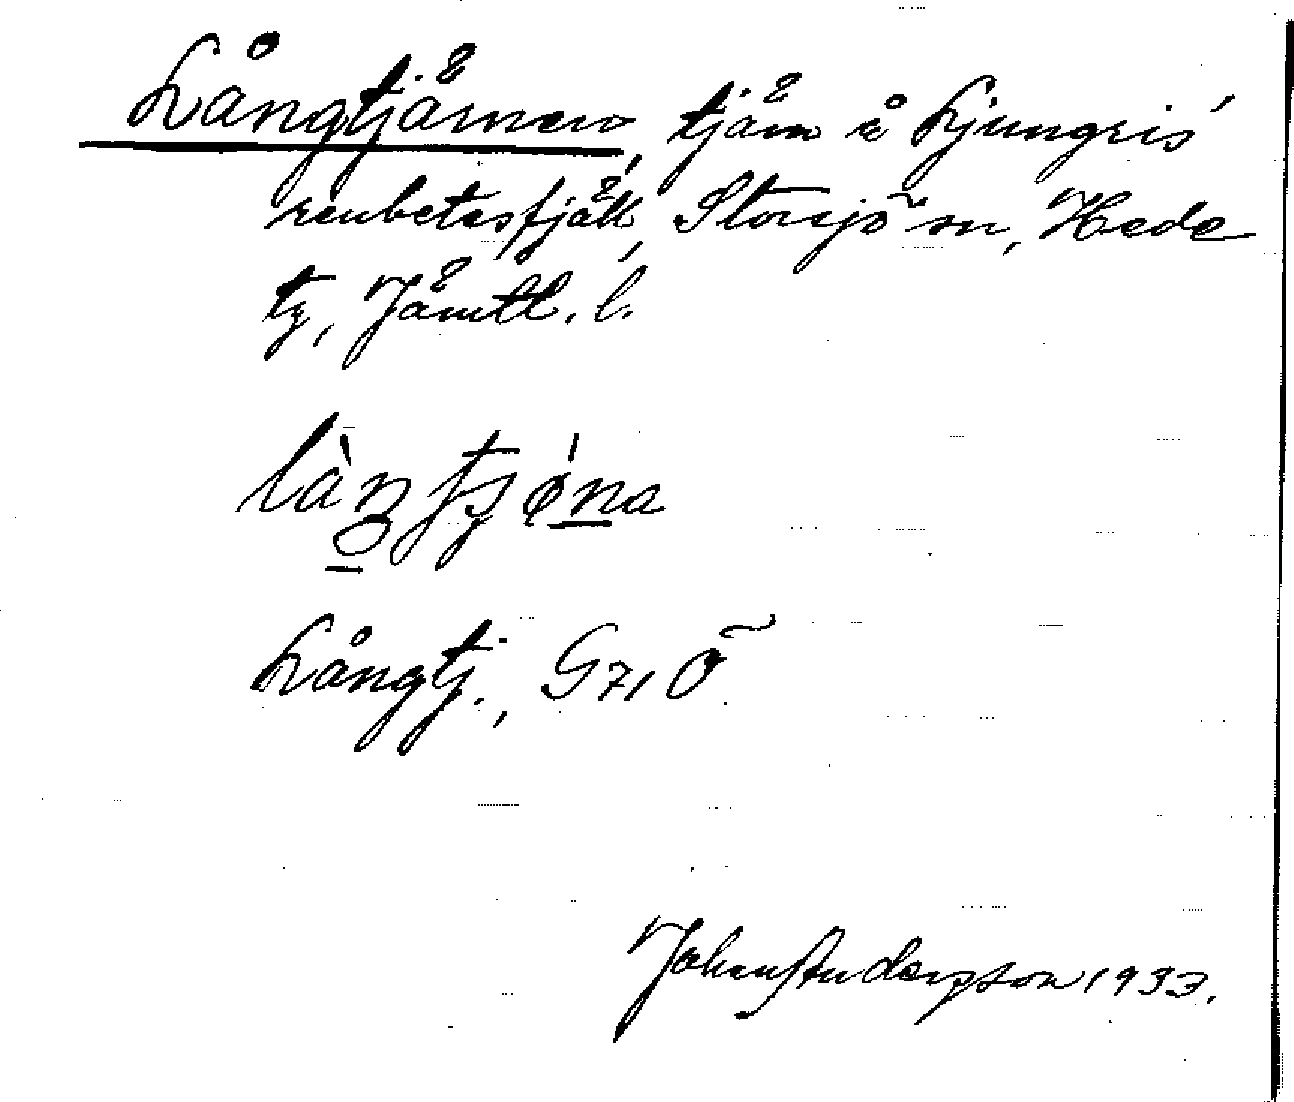 Långtjärnen, tjärn å Ljungris'
renbetesfjäll, Storsjö sn, Hede
tg, Jämtl. l.
Långtj., G71 Ö
Johan Andersson 1933.